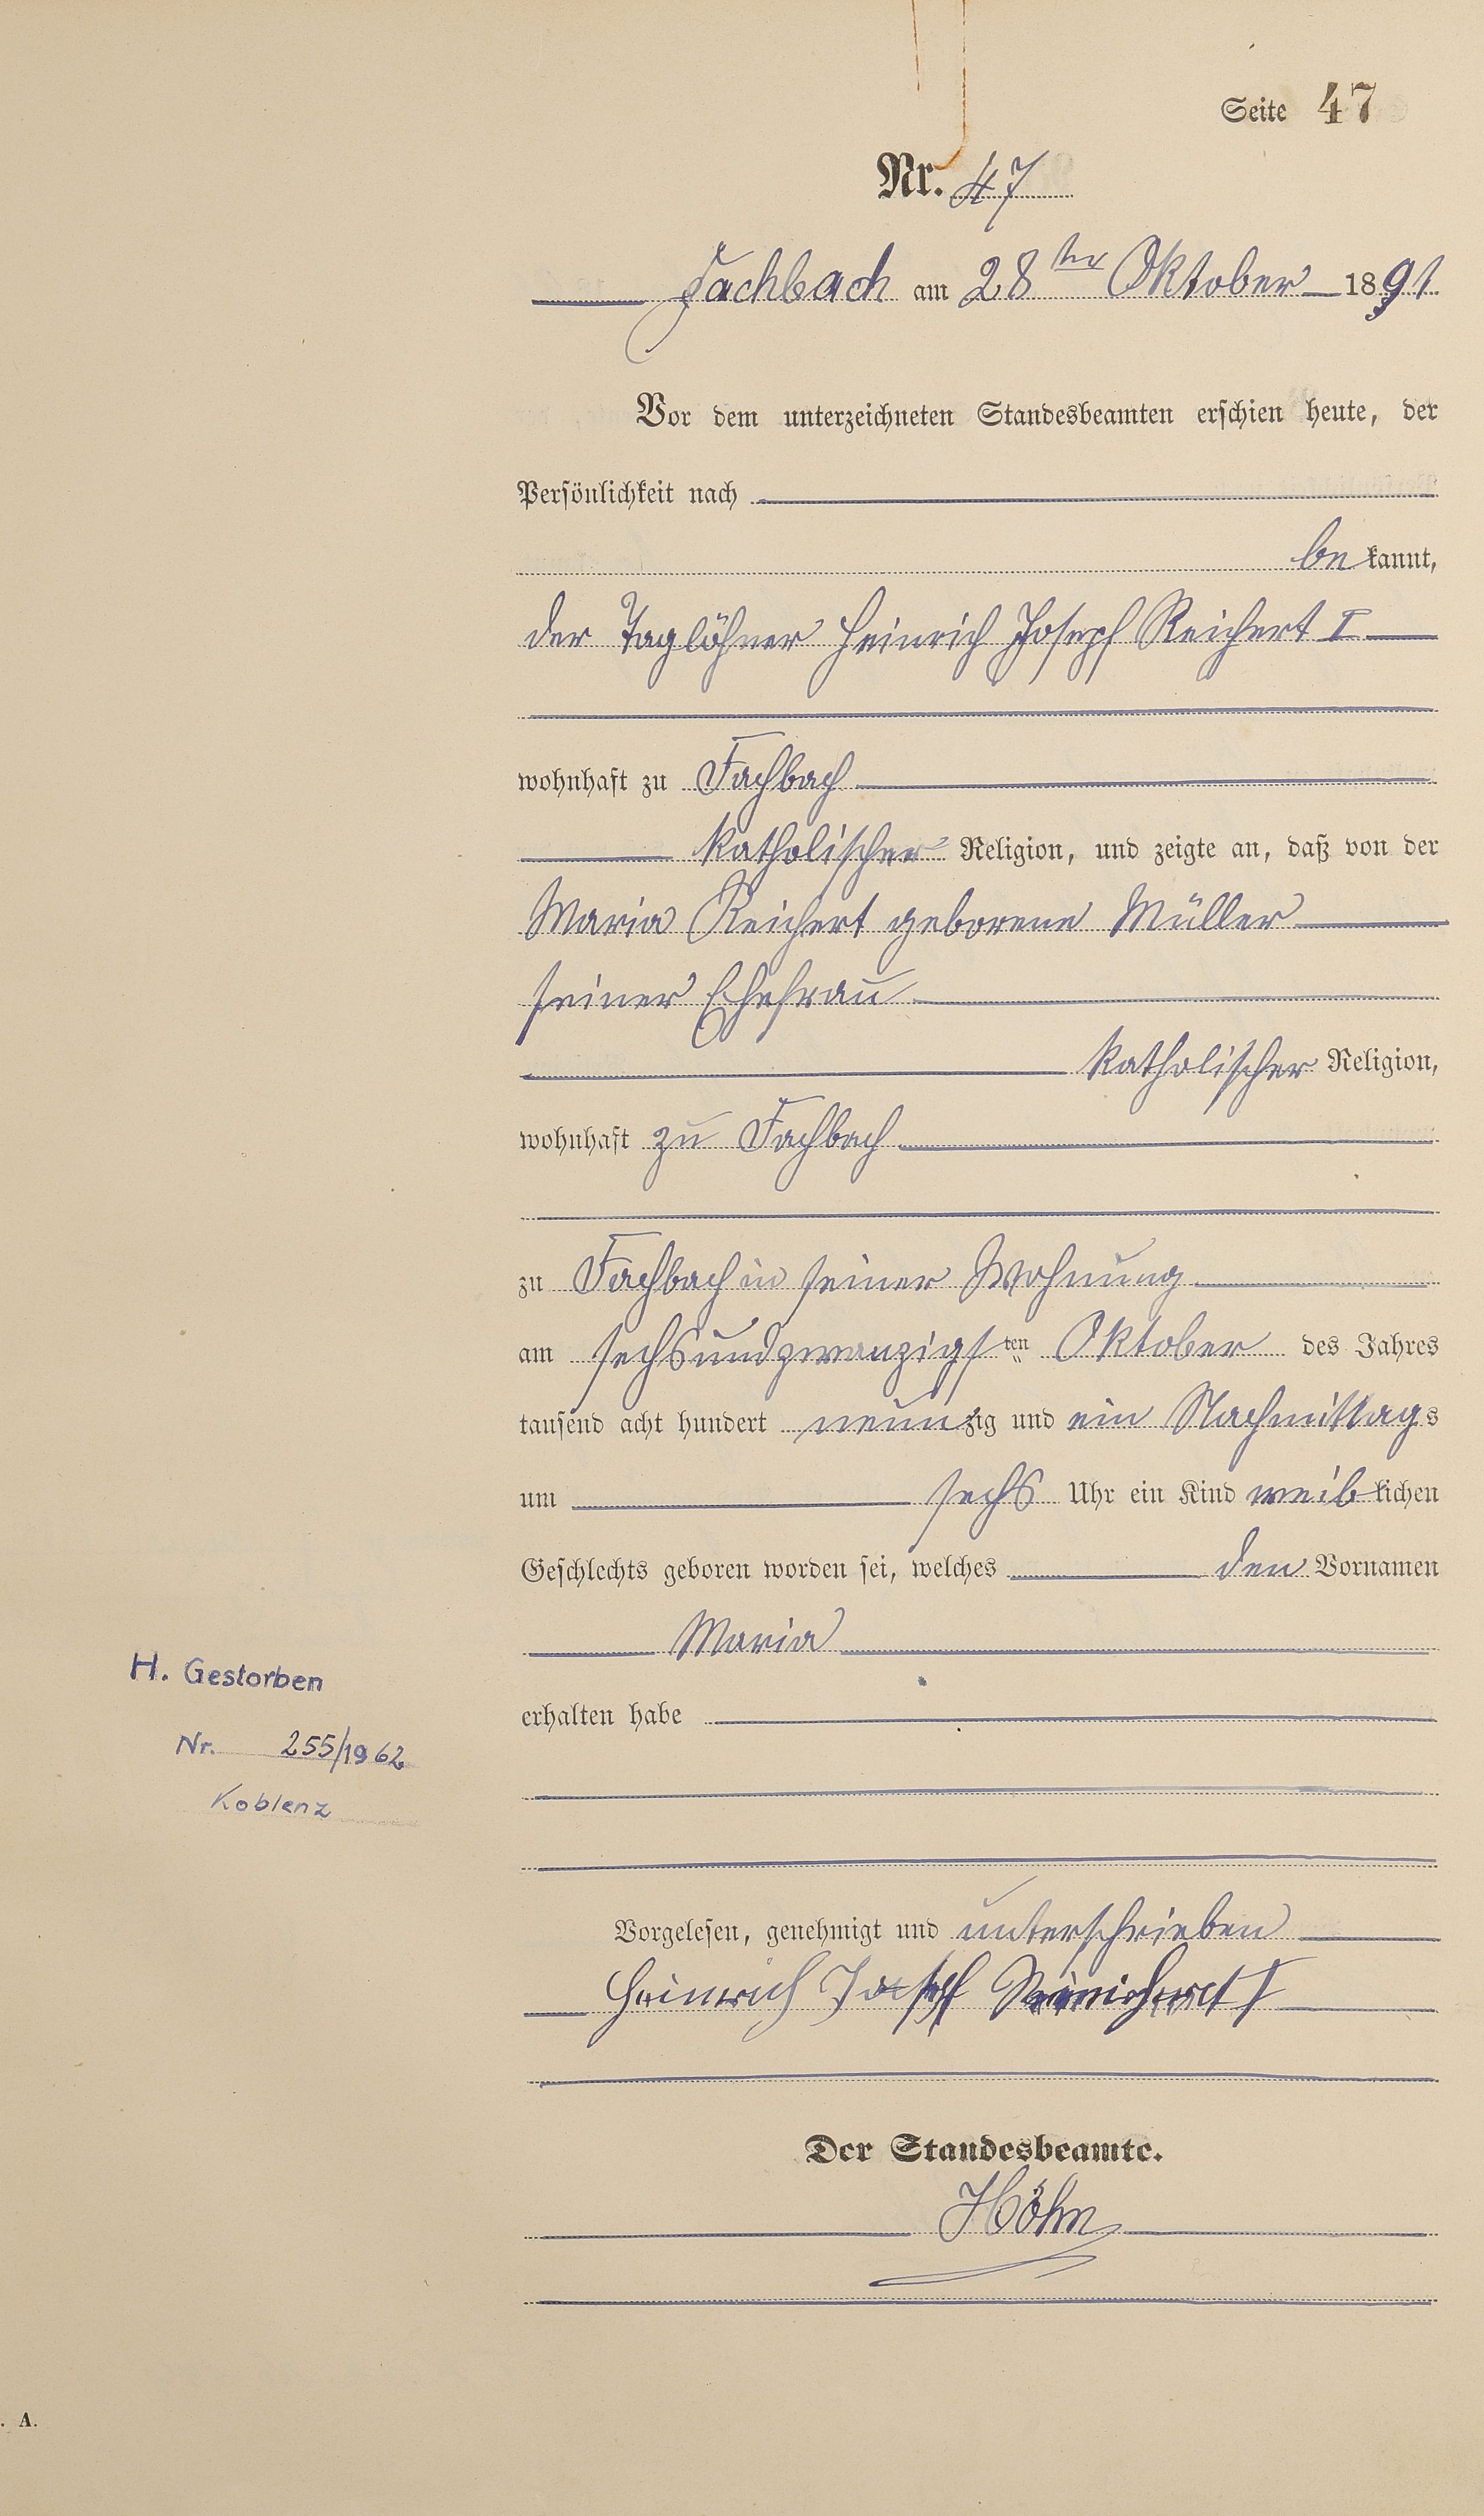 Seite 47
Nr. 47
Fachbach am 28ten Oktober 1891
Vor dem unterzeichneten Standesbeamten erschien heute, der
Persönlichkeit nach
bekannt,
der Taglöhner Heinrich Joseph Reichert I
wohnhaft zu Fachbach
katholischer Religion, und zeigte an, daß von der
Maria Reichert geborene Müller
seiner Ehefrau
katholischer Religion,
wohnhaft zu Fachbach
zu Fachbach in seiner Wohnung
am sechsundzwanzigsten Oktober des Jahres
tausend acht hundert neunzig und ein Nachmittags
um sechs Uhr ein Kind weiblichen
Geschlechts geboren worden sei, welches den Vornamen
Maria
H. Gestorben
erhalten habe
Nr. 255/1962
Koblenz
Vorgelesen, genehmigt und unterschrieben
Heinrich Joseph Reichert I
Der Standesbeamte.
Höhn
. A.